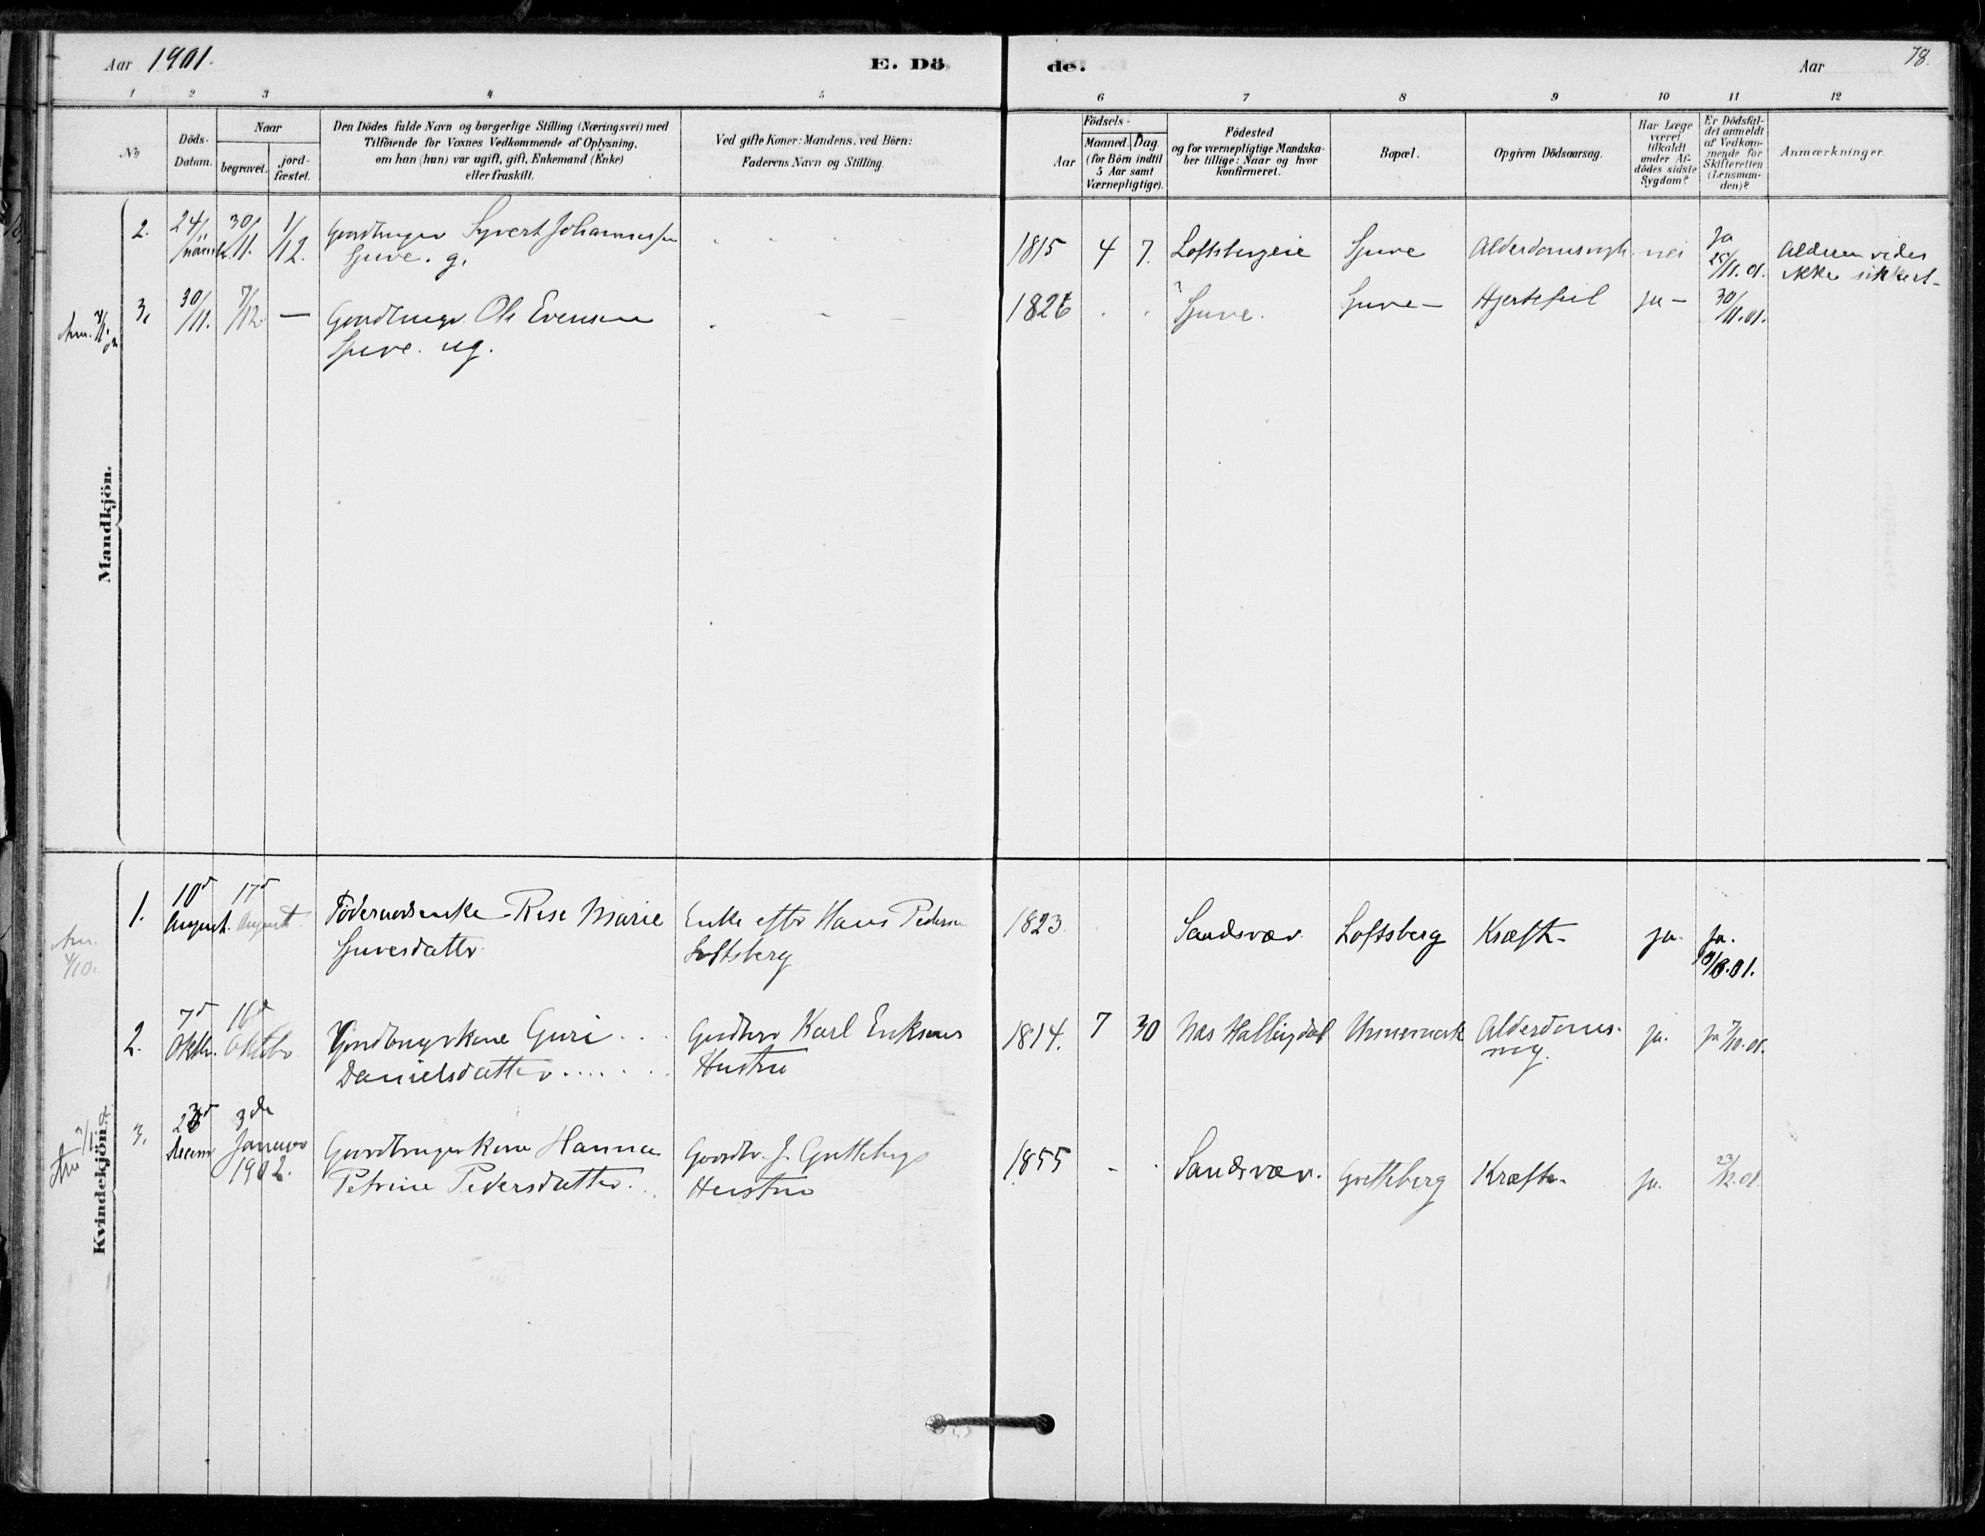 Aar 1901.
E. Dö
de.
Aar
78.
1 2 3 4 5 6 7 8 9 10 11 12
No
Döds-
Datum.
Naar
begravet.
jord-
fæstet.
Den Dödes fulde Navn og borgerlige Stilling (Næringsvei) med
Tilföiende for Voxnes Vedkommende af Oplysning,
om han (hun) var ugift, gift, Enkemand (Enke)
eller fraskilt.
Ved gifte Koner: Mandens, ved Börn:
Faderens Navn og Stilling.
Födsels-
Aar
Maaned. Dag.
(for Börn indtil
5 Aar samt
Værnepligtige).
Födested
og for værnepligtige Mandska-
ber tillige: Naar og hvor
konfirmeret.
Bopæl.
Opgiven Dödsaarsag.
Har Læge
været
tilkaldt
under Af-
dödes sidste
Sygdom?
Er Dödsfal-
det anmeldt
af Vedkom-
mende for
Skifteretten
(Lensman-
den)?
Anmærkninger.
Mandkjön.
2. 24/11 30/11. 1/12. Gaardbruger Syvert Johannessen
Sjuve. g.
1815 4 7. Loftsbergeie Sjuve nei Ja
25/11.01.
Alderen vides
ikke sikkert-
3. 30/11. 7/12 — Gaardbruger Ole Evensen
Sjuve. ug.
1826 Sjuve. Sjuve— Hjertefeil ja— 30/11.01.
Kvindekjön.
1. 10d
August.
17d
August
Föderaadsenke Rise Marie
Sjuvesdatter
Enke efter Hans Pedersen
Loftsberg
1823. Sandsvær Loftsberg Kræft. ja. ja.
2. 7d
Oktbr.
16d
Oktobr
Gaardbrugerkone Guri
Danielsdatter
Gaardbr Karl Eriksens
Hustru
1814. 7 30 Næs Hallingdal Alderdoms-
ja. ja 7/10.01.
3. 3de
Januar
1902.
Gaardbrugerkone Hanna
Petrine Pedersdatter.
Gaardbr. J. Grettebergs
Hustru
1855 Sandsvær. Gretteberg Kræft. ja. 23/12.01.